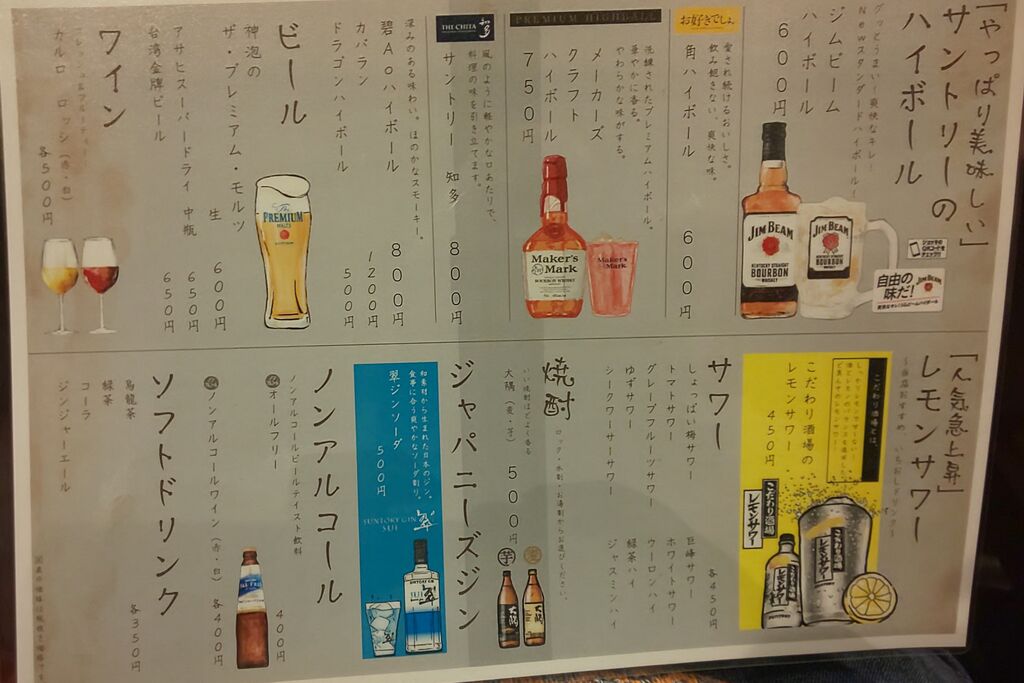 「やっぱり美味しい」
サントリーの
ハイボール
グッとうまい！爽快なキレ！
Newスタンダードハイボール！
ジムビーム
ハイボール
600円
JIM BEAM
KENTUCKY STRAIGHT
BOURBON
WHISKEY
JIM BEAM
BOURBON
自由の
味だ！
JIM BEAM
お好きでしょ
愛され続けるおいしさ。
飲み飽きない、爽快な味。
角ハイボール
600円
PREMIUM HIGHBALL
洗練されたプレミアムハイボール。
華やかに香る。
やわらかな味がする。
メーカーズ
クラフト
ハイボール
750円
Maker's
Mark
Maker's
Mark
THE CHITA
知多
風のように軽やかな口あたりで、
料理の味を引き立てます。
サントリー 知多
800円
深みのある味わい。ほのかなスモーキー。
碧Aoハイボール
800円
カバラン
1200円
ドラゴンハイボール
500円
ビール
神泡の
ザ・プレミアム・モルツ 生
600円
アサヒスーパードライ 中瓶
650円
台湾金牌ビール
650円
The
PREMIUM
MALT'S
ワイン
カルロ ロッシ（赤・白）
各500円
「人気急上昇」
レモンサワー
～当店おすすめ、いちおしドリンク～
こだわり酒場とは、
こだわり酒場の
レモンサワー
450円
こだわり酒場
レモンサワー
こだわり酒場の
レモンサワー
サワー
しょっぱい梅サワー
トマトサワー
グレープフルーツサワー
ゆずサワー
シークワーサーサワー
巨峰サワー
ホワイトサワー
ウーロンハイ
緑茶ハイ
ジャスミンハイ
各450円
焼酎
ロック・水割・お湯割からお選びください。
いい焼酎ほどよく香る
大隅（麦・芋）
500円
芋
麦
大隅
大隅
ジャパニーズジン
和素材から生まれた日本のジン。
食事に合う爽やかなソーダ割り。
翠ジンソーダ
500円
SUNTORY GIN
SUI
翠
ノンアルコール
ノンアルコールビールテイスト飲料
オールフリー
400円
ノンアルコールワイン（赤・白）
各400円
ALL-FREE
ソフトドリンク
烏龍茶
緑茶
コーラ
ジンジャーエール
各350円